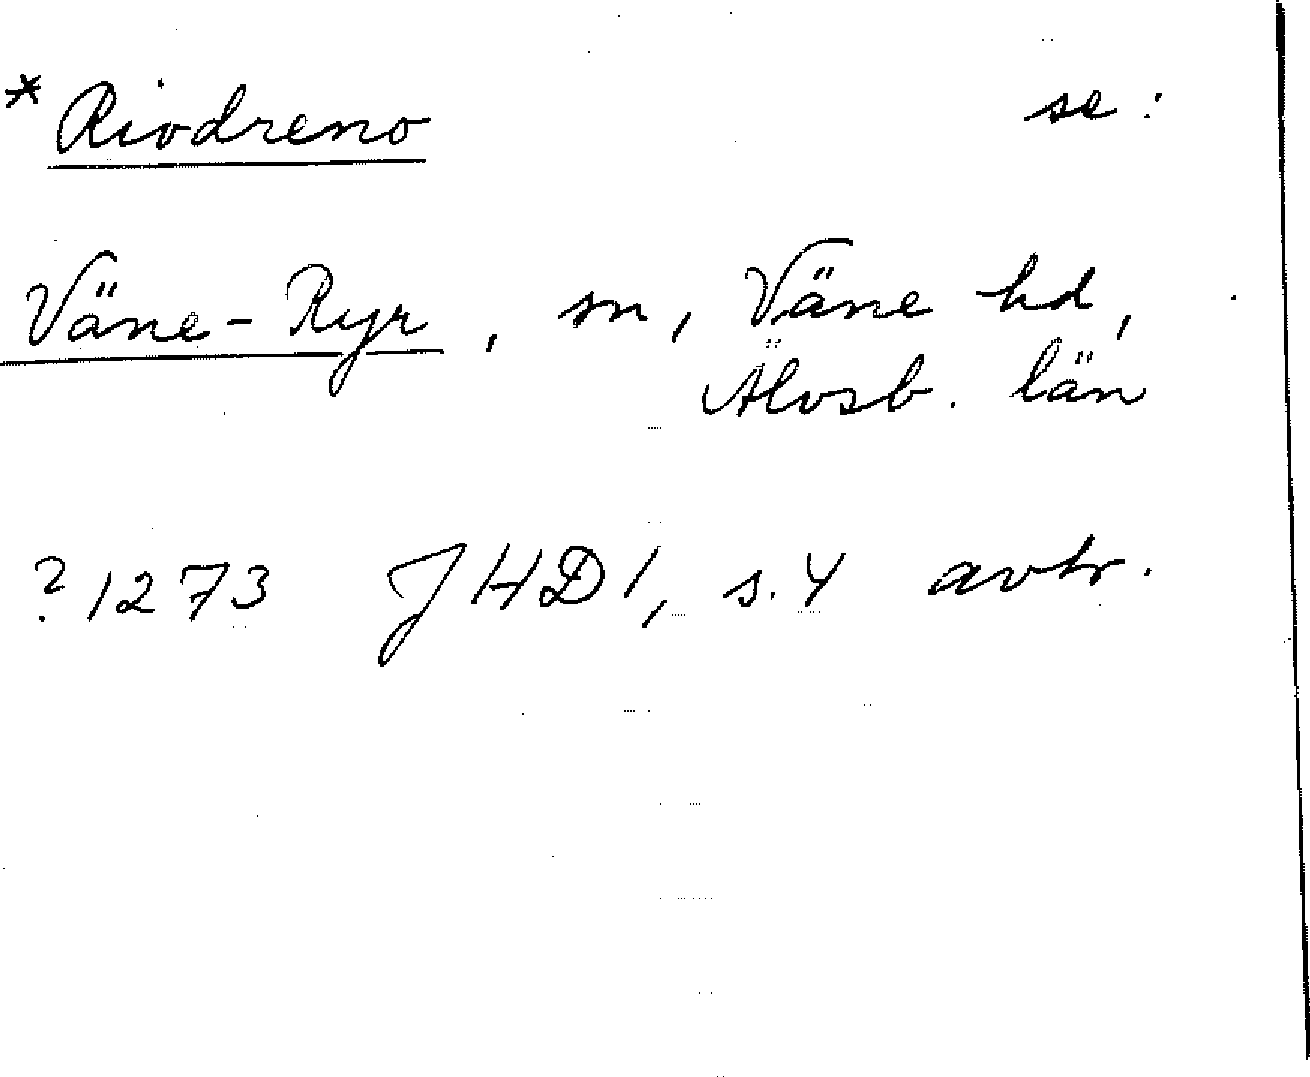 * Riodreno se:
Väne-Ryr, sn, Väne hd,
Älvsb. län
? 1273 JHD 1, s. 4 avtr.